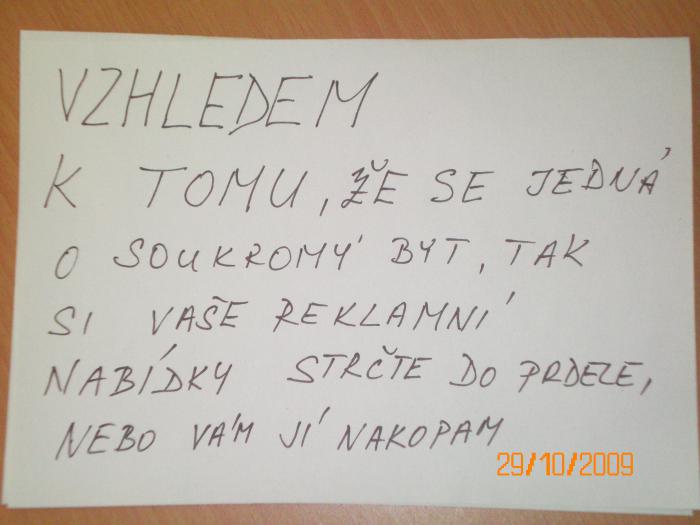 VZHLEDEM
K TOMU, ŽE SE JEDNÁ
O SOUKROMÝ BYT, TAK
SI VAŠE REKLAMNÍ
NABÍDKY STRČTE DO PRDELE,
NEBO VÁM JÍ NAKOPAM
29/10/2009